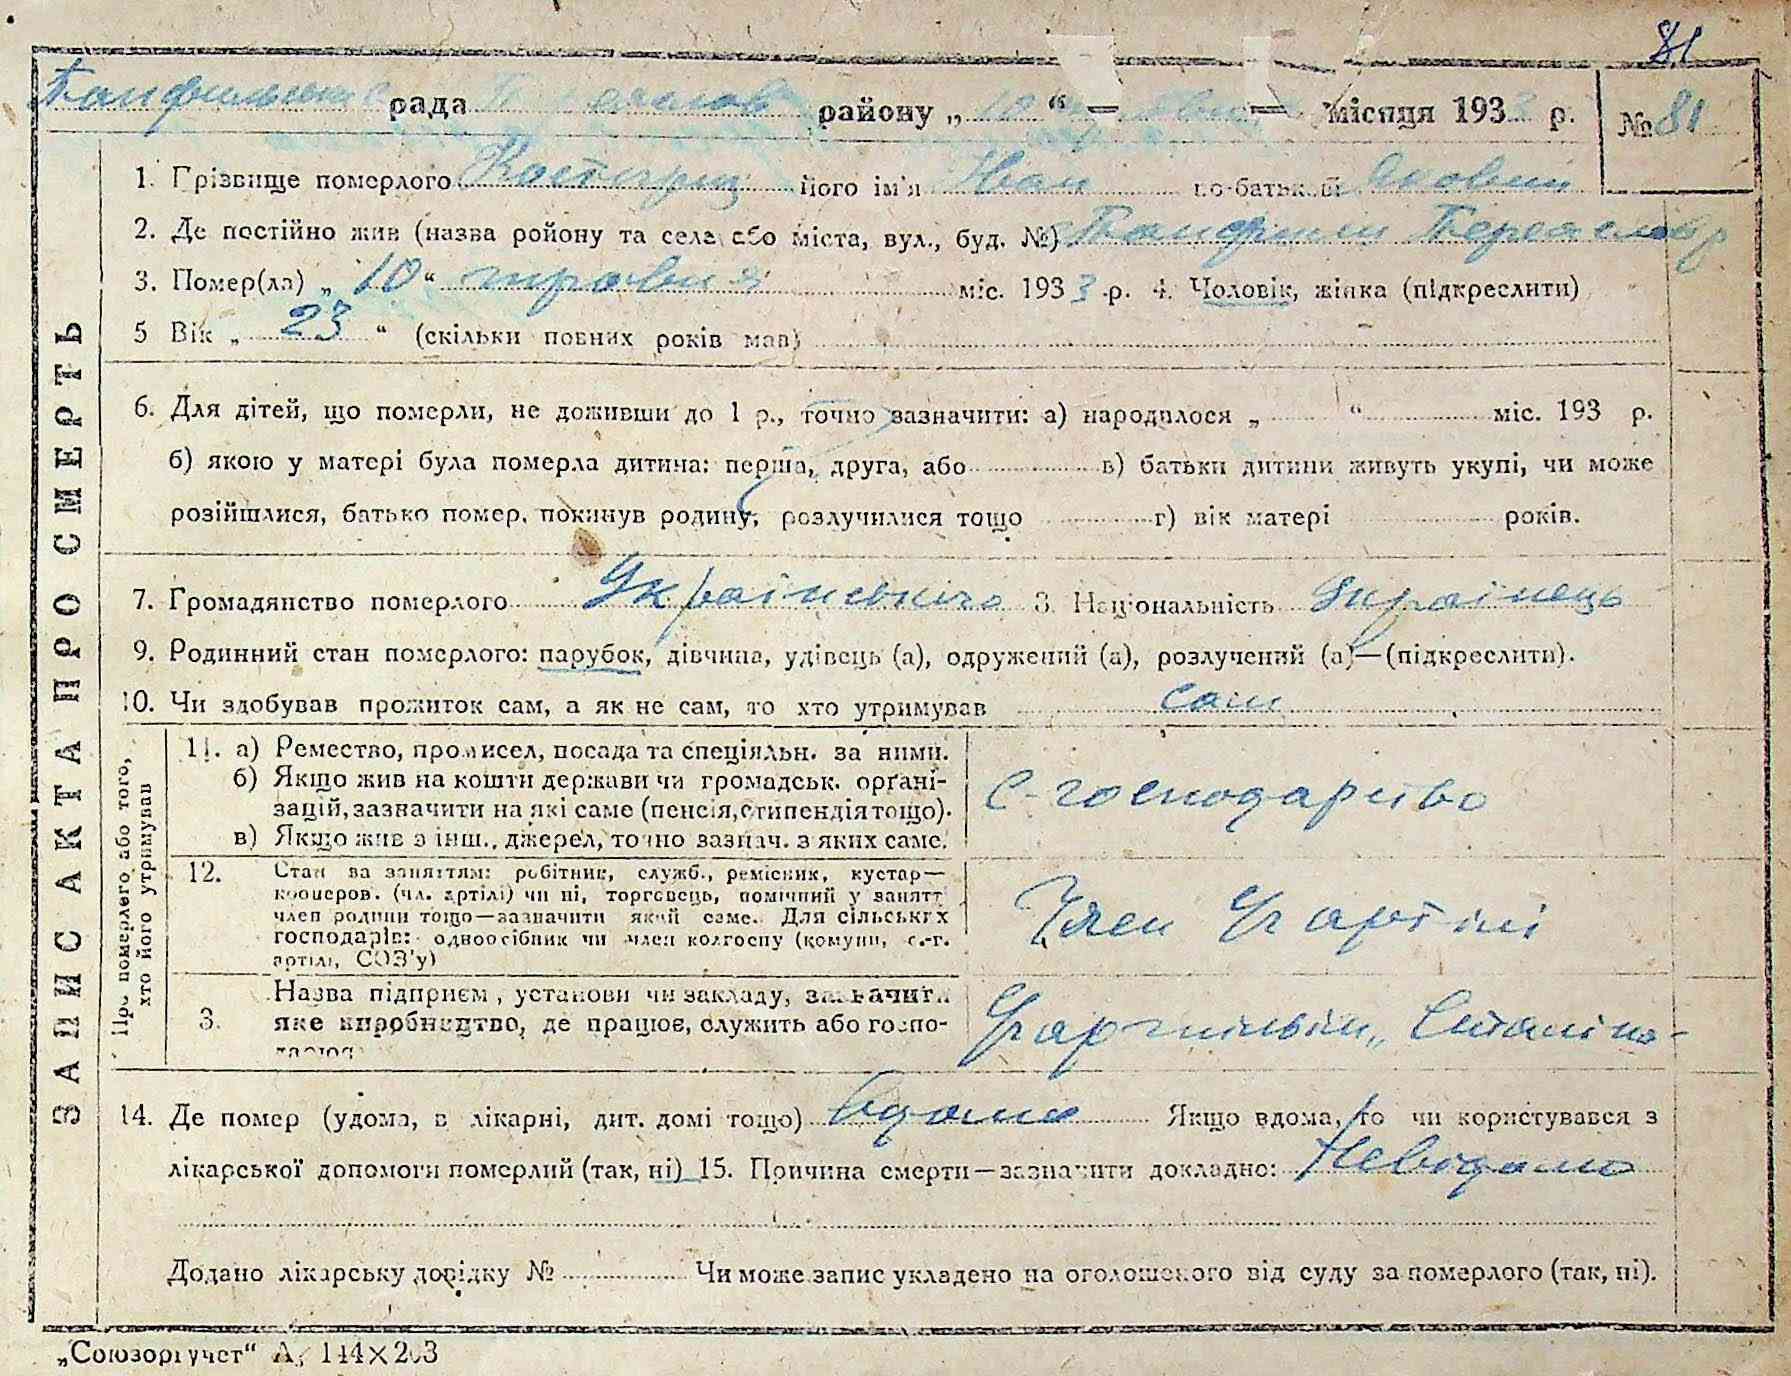 81
рада району „10“ — — місяця 1933 р. № 81
ЗАПИС АКТА ПРО СМЕРТЬ
1. Прізвище померлого його ім'я Іван по-батькові Якович
2. Де постійно жив (назва ройону та села або міста, вул., буд. №) Панфили Переяслав р
3. Помер(ла) „10“ травня міс. 1933 р. 4. Чоловік, жінка (підкреслити)
5 Вік „23“ (скільки повних років мав)
6. Для дітей, що померли, не доживши до 1 р., точно зазначити: а) народилося „ “ міс. 193 р.
б) якою у матері була померла дитина: перша, друга, або в) батьки дитини живуть укупі, чи може
розійшлися, батько помер, покинув родину, розлучилися тощо г) вік матері років.
7. Громадянство померлого 8. Національність Українець
9. Родинний стан померлого: парубок, дівчина, удівець (а), одружений (а), розлучений (а)—(підкреслити).
10. Чи здобував прожиток сам, а як не сам, то хто утримував сам
Про померлого або того,
хто його утримував
11. а) Ремество, промисел, посада та спеціяльн. за ними.
б) Якщо жив на кошти держави чи громадськ. орґані-
зацій, зазначити на які саме (пенсія, стипендія тощо).
в) Якщо жив з інш., джерел, точно зазнач. з яких саме.
С-господарство
12. Стан за заняттям: робітник, служб., ремісник, кустар—
кооперов. (чл. артілі) чи ні, торговець, помічний у занятті
член родини тощо—зазначити який саме. Для сільських
господарів: одноосібник чи член колгоспу (комуни, с.-г.
артілі, СОЗ'у)
Член артілі
3. Назва підприєм, установи чи закладу, зазначити
яке виробництво, де працює, служить або госпо-
дарює
14. Де помер (удома, в лікарні, дит. домі тощо) вдома Якщо вдома, то чи користувався з
лікарської допомоги померлий (так, ні) 15. Причина смерти—зазначити докладно: Невідомо
Додано лікарську довідку № Чи може запис укладено на оголошеного від суду за померлого (так, ні).
„Союзоргучет“ 144×203